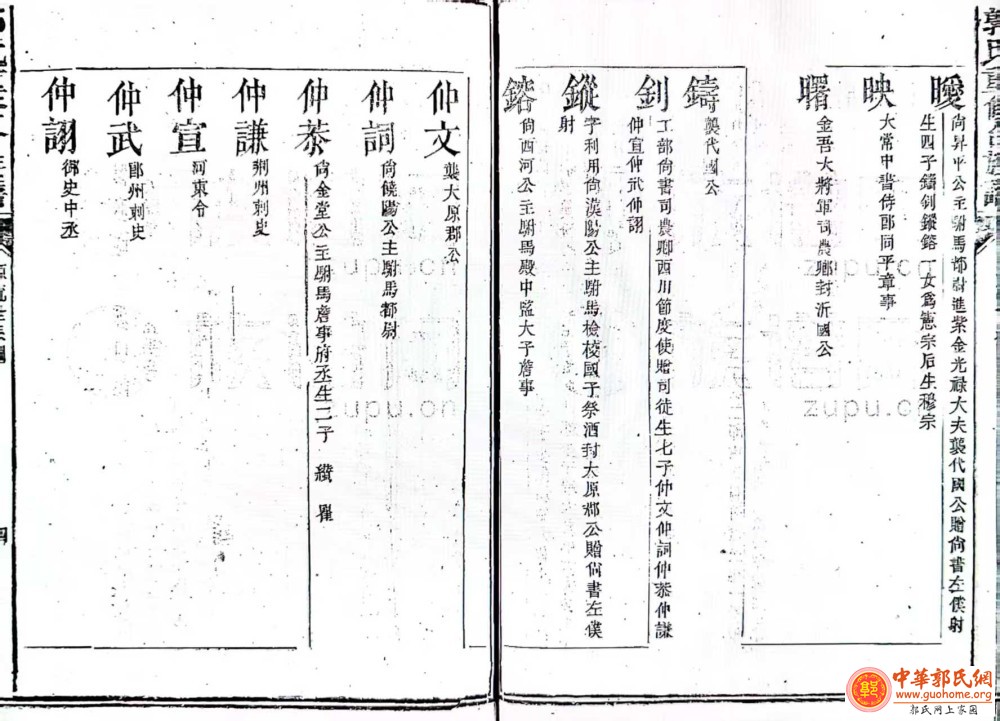 曖
尙昇平公主駙馬都尉進紫金光祿大夫襲代國公贈尙書左僕射
生四子鑄釗鏦鎔一女爲憲宗后生穆宗
映
大常中書侍郎同平章事
曙
金吾大將軍司農卿封沂國公
鑄
襲代國公
釗
工部尙書司農卿西川節度使贈司徒生七子仲文仲詞仲恭仲謙
仲宣仲武仲詡
鏦
字利用尙漢陽公主駙馬檢校國子祭酒封太原郡公贈尙書左僕
射
鎔
尙西河公主駙馬殿中監太子詹事
仲文
襲大原郡公
仲詞
尙饒陽公主駙馬都尉
仲恭
尙金堂公主駙馬詹事府丞生二子 纘
仲謙
荆州刺史
仲宣
河東令
仲武
州刺史
仲詡
御史中丞
zupu.cn
zupu.cn
zupu.cn
zupu.cn
中華郭氏網
www.guohome.org
郭氏网上家园